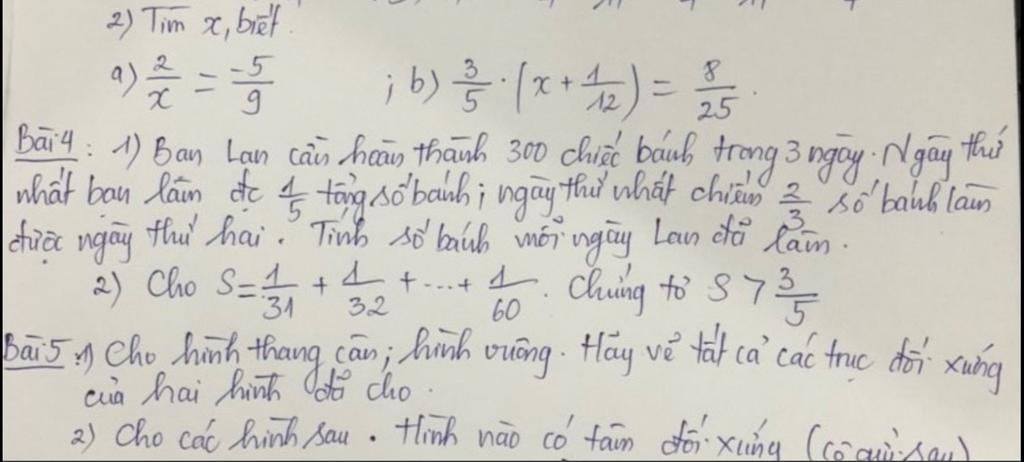 2) Tìm x, biết
a) 2/x = -5/9 ; b) 3/5 . (x + 1/12) = 8/25.
Bài 4: 1) Bạn Lan cần hoàn thành 300 chiếc bánh trong 3 ngày. Ngày thứ
nhất bạn làm đc 1/5 tổng số bánh; ngày thứ nhất chiếm 2/3 số bánh làm
được ngày thứ hai. Tính số bánh mỗi ngày Lan đã làm.
2) Cho S = 1/31 + 1/32 + ... + 1/60. Chứng tỏ S > 3/5
Bài 5: 1) Cho hình thang cân; hình vuông. Hãy vẽ tất cả các trục đối xứng
của hai hình đã cho.
2) Cho các hình sau. Hình nào có tâm đối xứng (cô gửi sau)